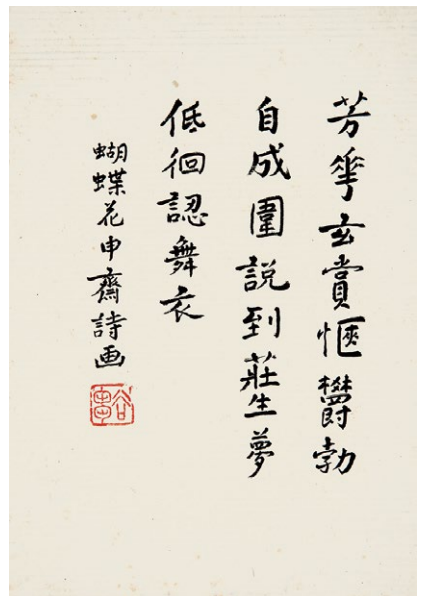 芳華玄賞愜鬱勃
自成圍説到莊生夢
低徊認舞衣
蝴蝶花申齋詩画